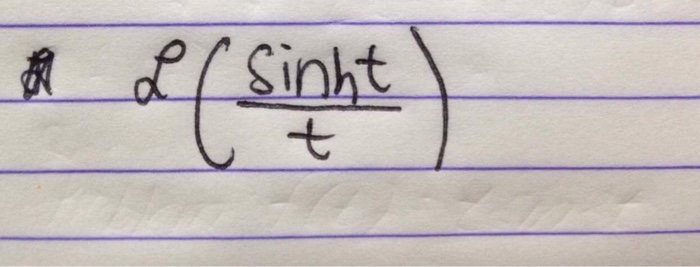 ℒ(sinht/t)